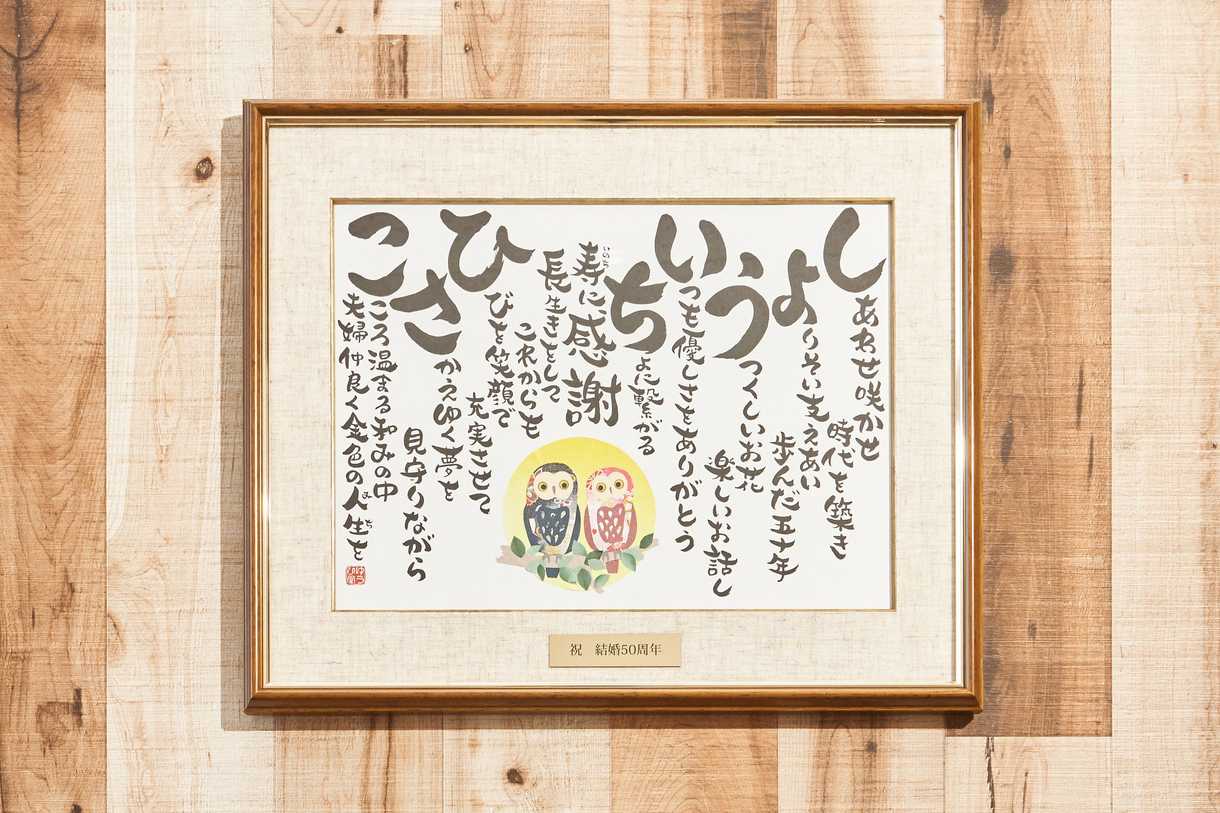 しあわせ咲かせ
時代を築き
よりそい支えあい
歩んだ五十年
うつくしいお花
楽しいお話し
いつも優しさをありがとう
ちよに繋がる
いのち
寿に感謝
長生きをして
これからも
ひびを笑顔で
充実させて
さかえゆく夢を
見守りながら
こころ温まる和みの中
夫婦仲良く金色の人生を
みち
祝　結婚50周年